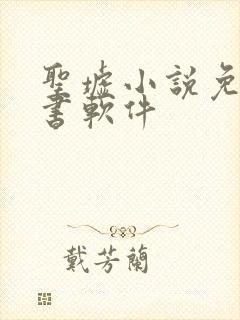 聖墟小說免
書軟件
戴芳蘭